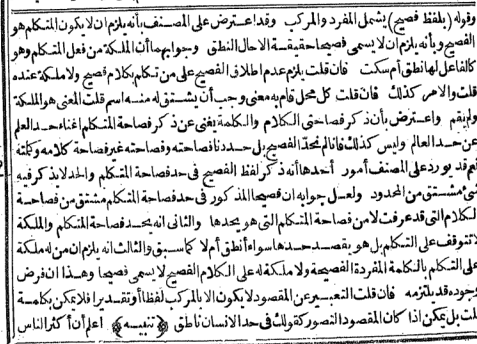 وقوله (بلفظ فصيح) يشمل المفرد والمركب وقد اعترض على المصنف بأنه يلزم ان لا يكون المتكلم هو
الفصيح وبأنه يلزم ان لا يسمى فصيحا حقيقة الا حال النطق وجوابهما أن الملكة من فعل المتكلم وهو
كالفاعل لها نطق أم سكت فان قلت يلزم عدم اطلاق الفصيح على من تكلم بكلام فصيح ولا ملكة عنده
قلت والامر كذلك فان قلت كل محل قام به معنى وجب أن يشتق له منه اسم قلت المعنى هو الملكة
ولم يقم واعترض بأن ذكر فصاحتى الكلام والكلمة يغنى عن ذكر فصاحة المتكلم اغناء حد العلم
عن حد العالم وليس كذلك فانا لم نحد الفصيح بل حددنا فصاحته وفصاحته غير فصاحة كلامه وكلمته
نعم قد يورد على المصنف أمور أحدها أنه ذكر لفظ الفصيح فى حد فصاحة المتكلم والحد لا يذكر فيه
شئ مشتق من المحدود ولعل جوابه ان فصيحا المذكور فى حد فصاحة المتكلم مشتق من فصاحة
الكلام التى قد عرفت لا من فصاحة المتكلم التى هو يحدها والثانى انه يحد فصاحة المتكلم والملكة
لا تتوقف على التكلم بل هو بقصد حدها سواء أنطق أم لا كما سبق والثالث انه يلزم ان من له ملكة
على التكلم بالكلمة المفردة الفصيحة ولا ملكة له على الكلام الفصيح لا يسمى فصيحا وهذا ان فرض
وجوده قد يلتزمه فان قلت التعبير عن المقصود لا يكون الا بالمركب لفظا أو تقديرا فلا يمكن بكلمة
قلت بل يمكن اذا كان المقصود التصور كقولك فى حد الانسان ناطق ﴿تنبيه﴾ اعلم أن أكثر الناس